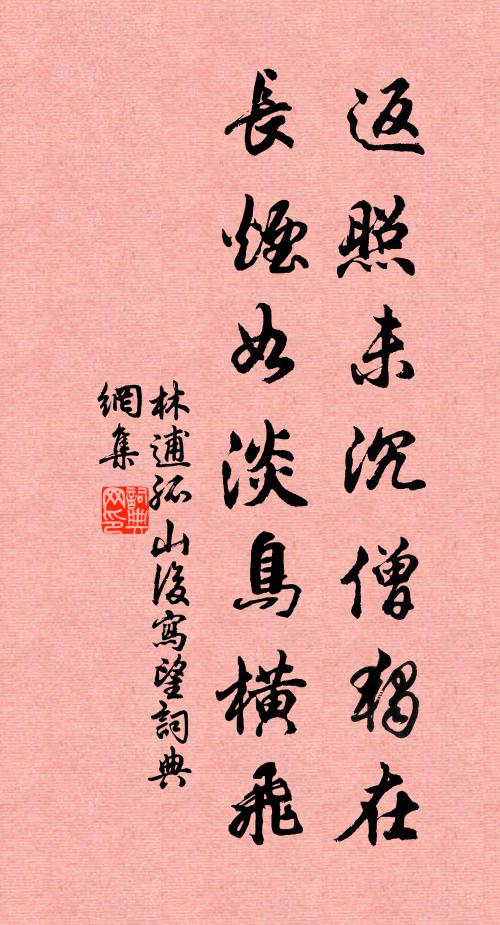 返照未沉僧獨在
長煙如淡鳥橫飛
林逋孤山後寫望詞典
網集
詞典
网印